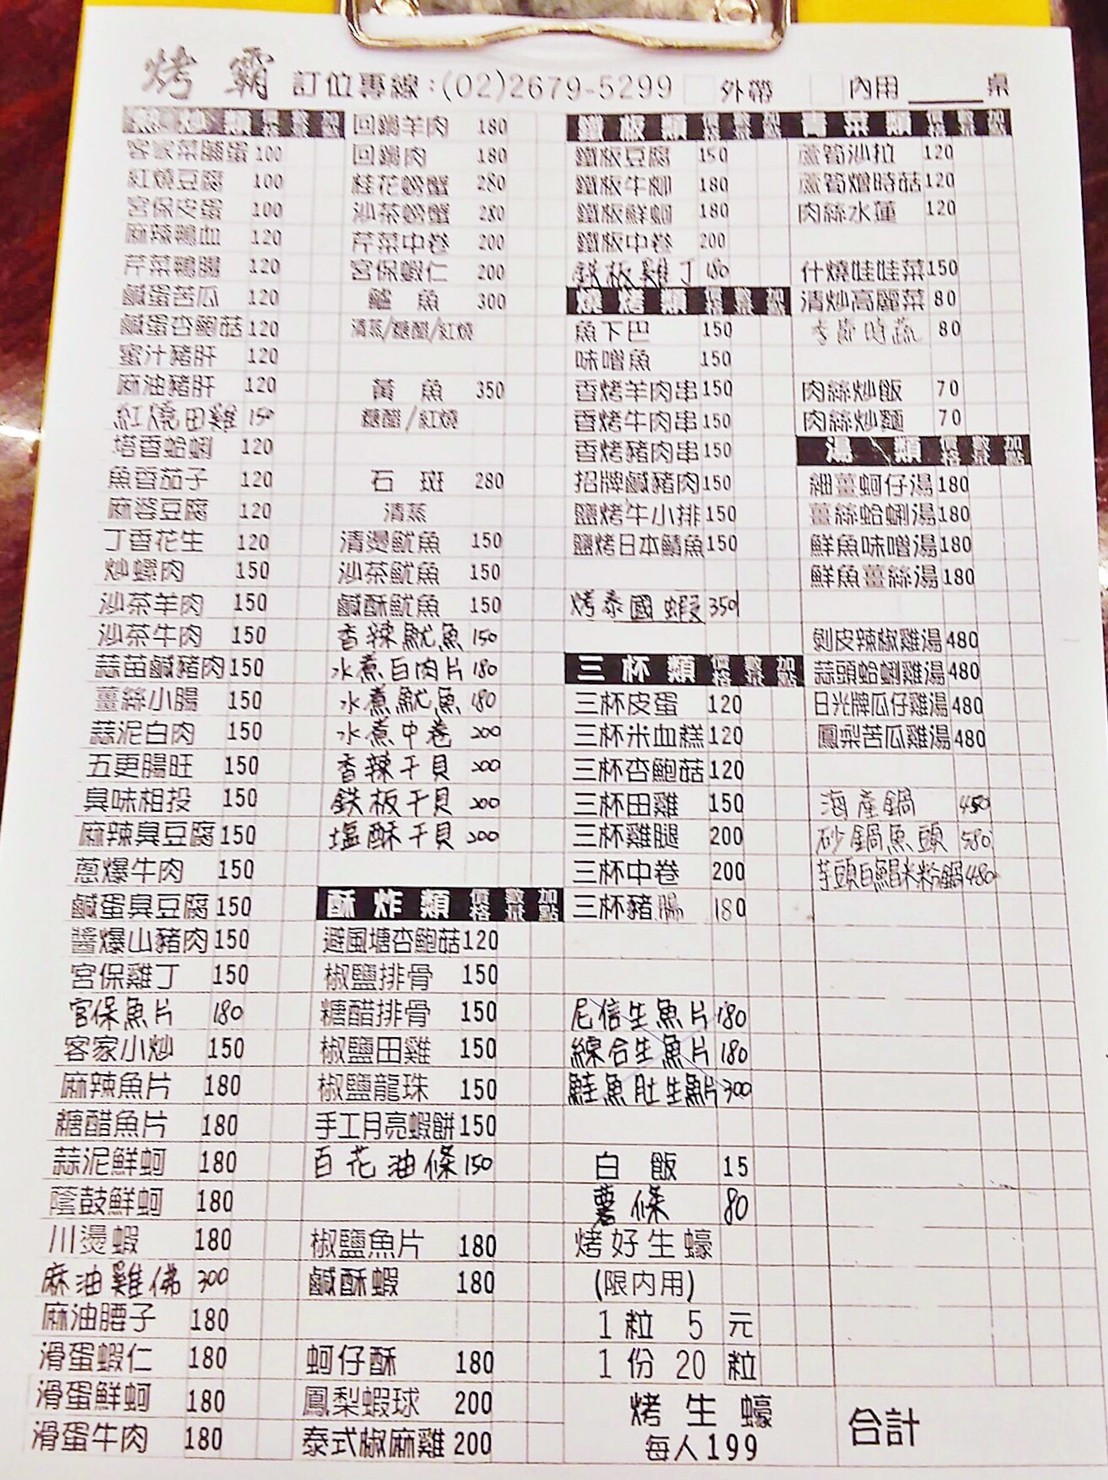 烤霸 訂位專線:(02)2679-5299 外帶 內用 桌
熱炒類 價格 數量 加點
客家菜脯蛋 100
紅燒豆腐 100
宮保皮蛋 100
麻辣鴨血 120
芹菜鴨腸 120
鹹蛋苦瓜 120
鹹蛋杏鮑菇 120
蜜汁豬肝 120
麻油豬肝 120
紅燒田雞 150
塔香蛤蜊 120
魚香茄子 120
麻婆豆腐 120
丁香花生 120
炒螺肉 150
沙茶羊肉 150
沙茶牛肉 150
蒜苗鹹豬肉 150
薑絲小腸 150
蒜泥白肉 150
五更腸旺 150
臭味相投 150
麻辣臭豆腐 150
蔥爆牛肉 150
鹹蛋臭豆腐 150
醬爆山豬肉 150
宮保雞丁 150
宮保魚片 180
客家小炒 150
麻辣魚片 180
糖醋魚片 180
蒜泥鮮蚵 180
蔭鼓鮮蚵 180
川燙蝦 180
麻油雞佛 300
麻油腰子 180
滑蛋蝦仁 180
滑蛋鮮蚵 180
滑蛋牛肉 180
回鍋羊肉 180
回鍋肉 180
桂花螃蟹 280
沙茶螃蟹 280
芹菜中卷 200
宮保蝦仁 200
鱸魚 300
清蒸/糖醋/紅燒
黃魚 350
糖醋/紅燒
石斑 280
清蒸
清燙魷魚 150
沙茶魷魚 150
鹹酥魷魚 150
香辣魷魚 150
水煮白肉片 180
水煮魷魚 180
水煮中卷 200
香辣干貝 200
鉄板干貝 200
塩酥干貝 200
酥炸類 價格 數量 加點
避風塘杏鮑菇 120
椒鹽排骨 150
糖醋排骨 150
椒鹽田雞 150
椒鹽龍珠 150
手工月亮蝦餅 150
百花油條 150
椒鹽魚片 180
鹹酥蝦 180
蚵仔酥 180
鳳梨蝦球 200
泰式椒麻雞 200
鐵板類 價格 數量 加點
鐵板豆腐 150
鐵板牛柳 180
鐵板鮮蚵 180
鐵板中卷 200
鉄板雞丁 180
燒烤類 價格 數量 加點
魚下巴 150
味噌魚 150
香烤羊肉串 150
香烤牛肉串 150
香烤豬肉串 150
招牌鹹豬肉 150
鹽烤牛小排 150
鹽烤日本鯖魚 150
烤泰國蝦 350
三杯類 價格 數量 加點
三杯皮蛋 120
三杯米血糕 120
三杯杏鮑菇 120
三杯田雞 150
三杯雞腿 200
三杯中卷 200
三杯豬腸 180
尼信生魚片 180
綜合生魚片 180
鮭魚肚生魚片 300
白飯 15
薯條 80
烤好生蠔
(限內用)
1粒 5 元
1份 20 粒
烤生蠔
每人199
青菜類 價格 數量 加點
蘆筍沙拉 120
蘆筍燴時菇 120
肉絲水蓮 120
什燒娃娃菜 150
清炒高麗菜 80
季節時蔬 80
肉絲炒飯 70
肉絲炒麵 70
湯類 價格 數量 加點
細薑蚵仔湯 180
薑絲蛤蜊湯 180
鮮魚味噌湯 180
鮮魚薑絲湯 180
剝皮辣椒雞湯 480
蒜頭蛤蜊雞湯 480
日光牌瓜仔雞湯 480
鳳梨苦瓜雞湯 480
海產鍋 450
砂鍋魚頭 580
芋頭白鯧米粉鍋 480
合計